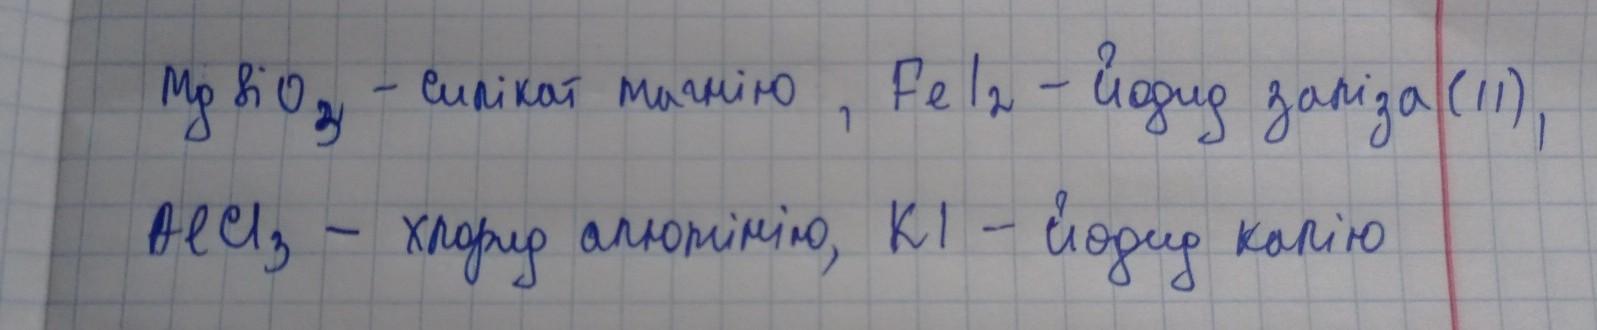 MgSiO3 - Силікат магнію, FeI2 - Йодид заліза (II),
AlCl3 - хлорид алюмінію, KI - Йодид калію